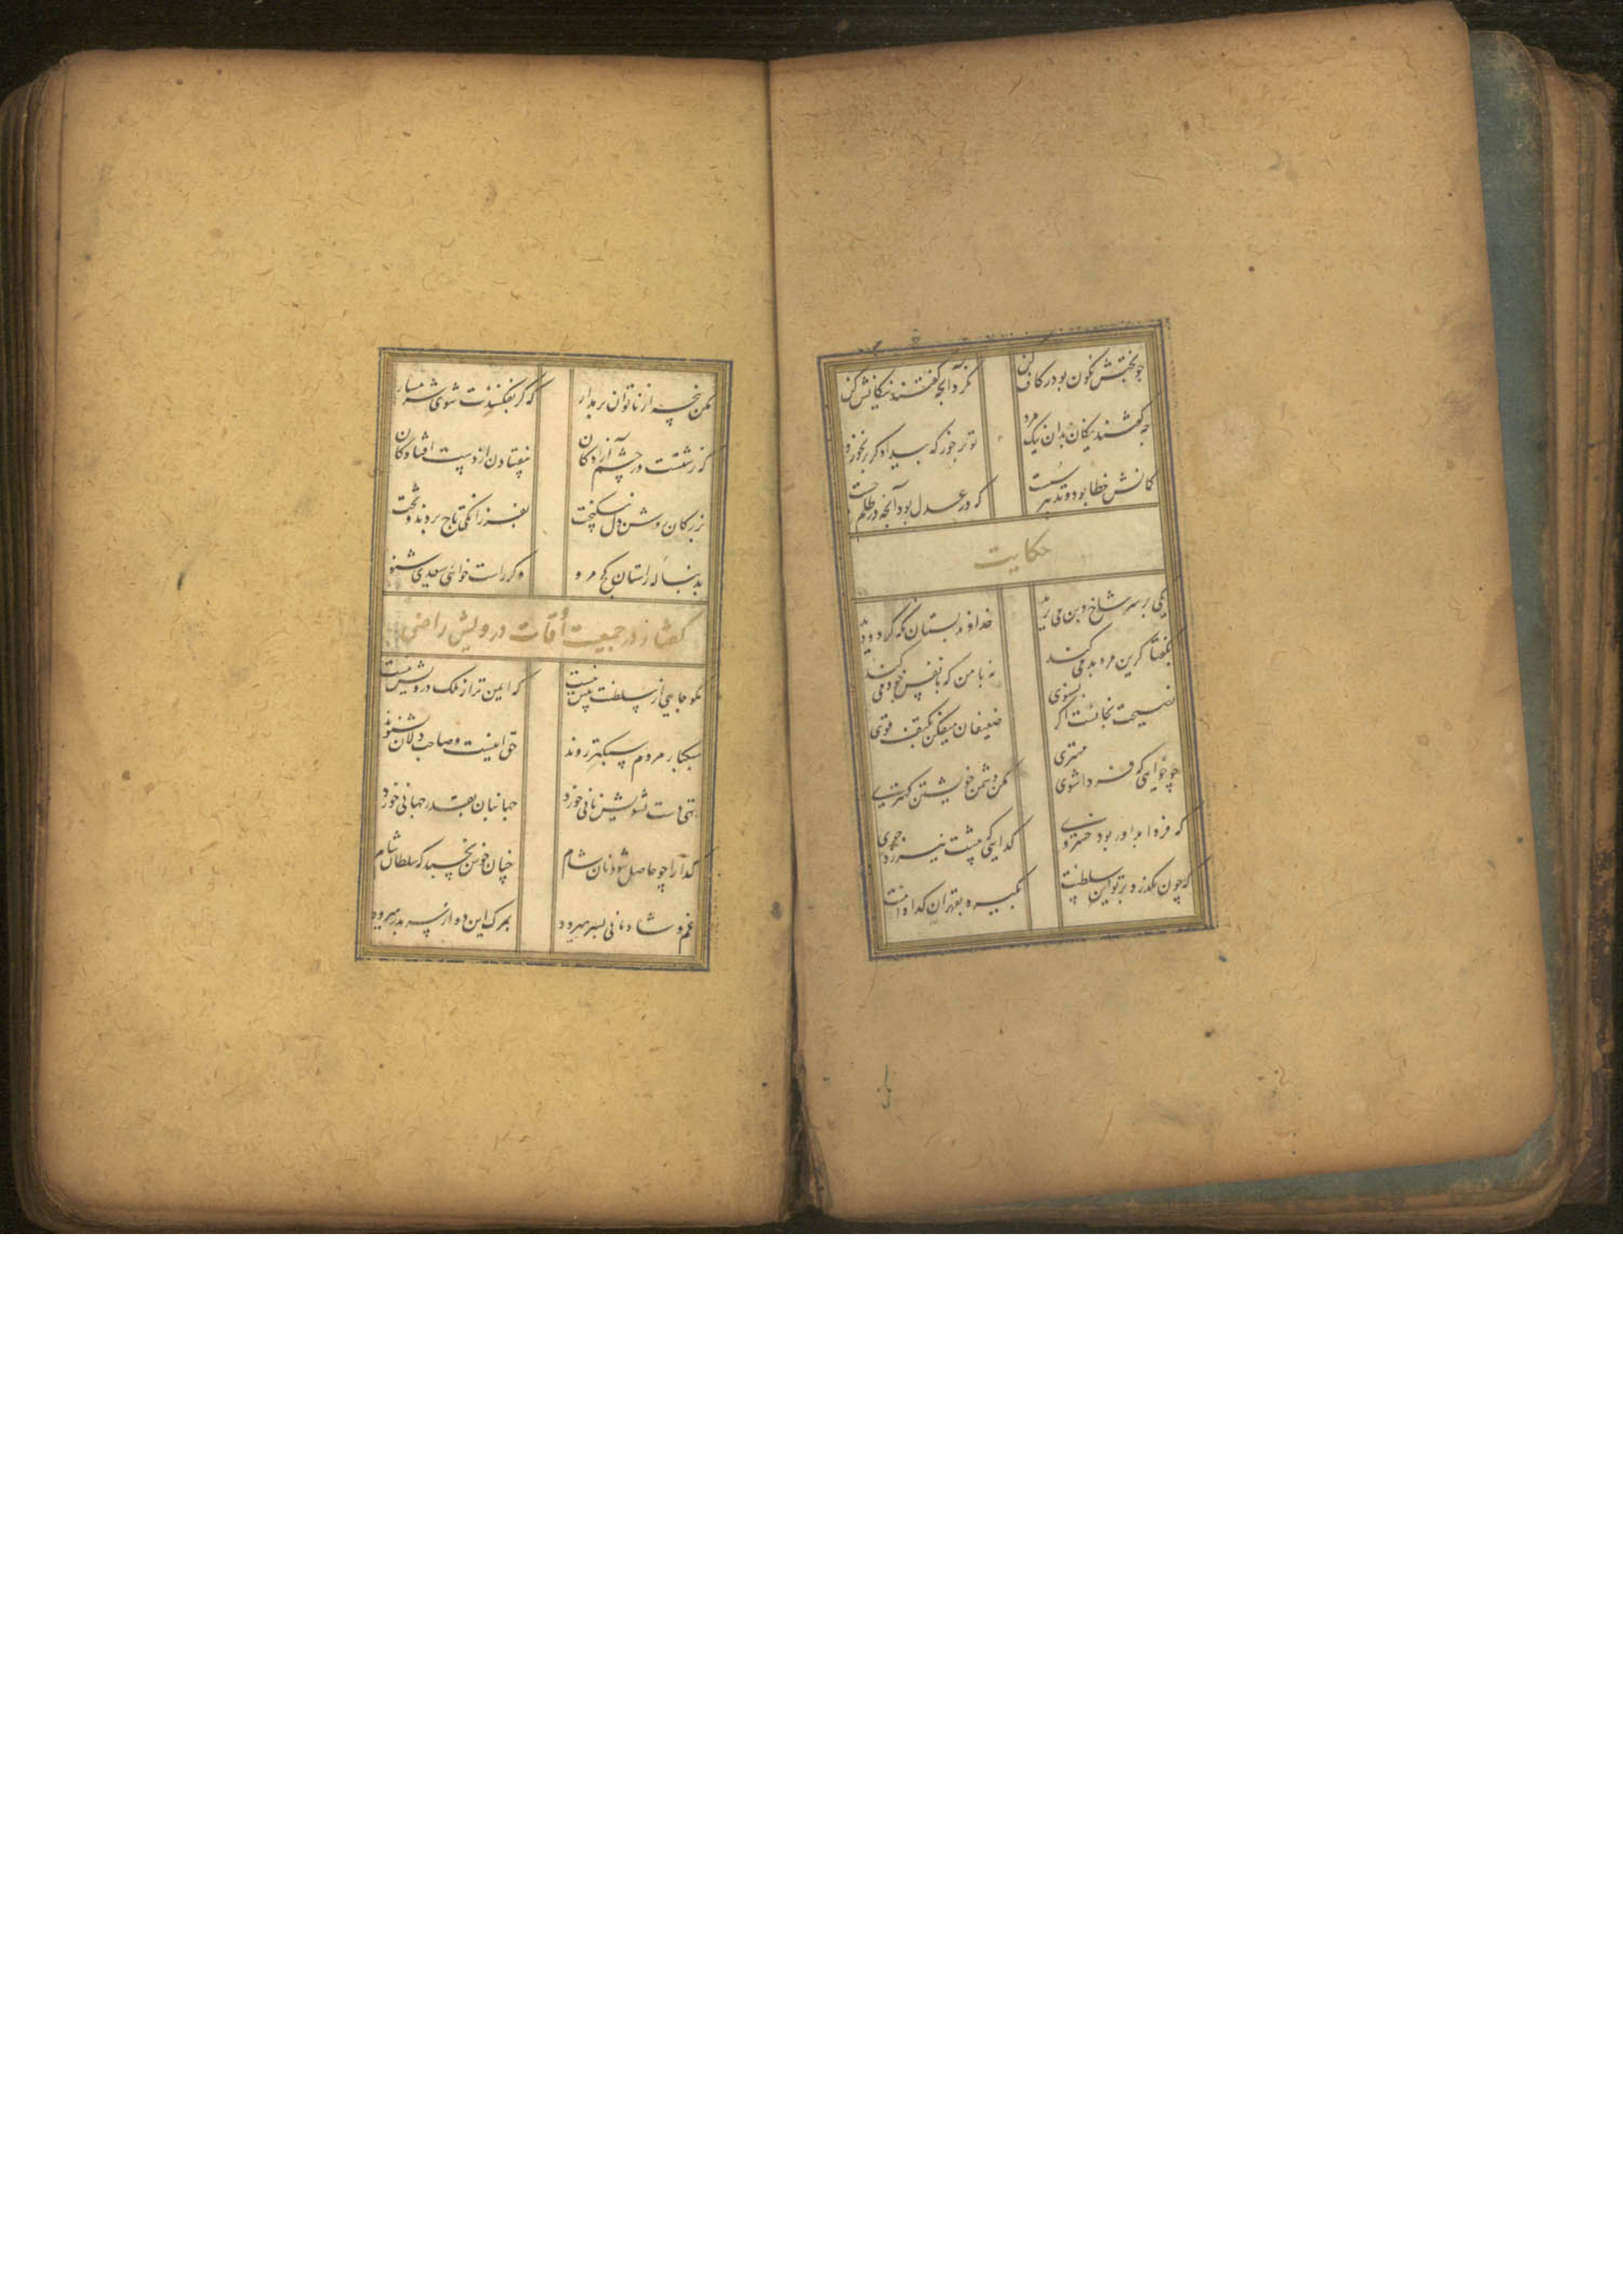 چو بختش نگون بود در کاف کن
نکرد آنچه گفتند نیکانش کن
چه گفتند نیکان بدان نیک مرد
تو بر خور که بیدادگر بر نخورد
گمانش خطا بود و تدبیر سست
که در عدل بود آنچه در ظلم جست
حکایت
یکی بر سر شاخ و بن می برید
خداوند بستان نگه کرد و دید
بگفتا گرین مرد بد می کند
نه با من که با نفس خود می کند
نصیحت بجائست اگر بشنوی
ضعیفان میفکن بکتف قوی
چو خواهی که فردا شوی مهتری
مکن دشمن خویشتن کهتری
که فردا بداور بود خسروی
گدایی که پیشت نیرزد جوی
که چون بگذرد بر تو این سلطنت
بگیرد بقهر آن گدا دامنت
مکن پنجه از ناتوان بر مدار
که گر بفکنندت شوی شرمسار
که زشتست در چشم آزادگان
بیفتادن از دست افتادگان
بزرگان روشن دل نیکبخت
بفرزانگی تاج بردند و تخت
بدنباله راستان کج مرو
وگر راست خواهی سعدی شنو
گفتار در جمعیت اوقات درویش راضی
مگو جاهی از سلطنت بیش نیست
که ایمن تر از ملک درویش نیست
سبکبار مردم سبکتر روند
حق اینست و صاحب دلان بشنوند
تهی دست تشویش نانی خورد
جهانبان بقدر جهانی خورد
گدا را چو حاصل شود نان شام
چنان خوش بخسبد که سلطان شام
غم و شادمانی بسر میرود
بمرگ این دو از سر بدر میرود